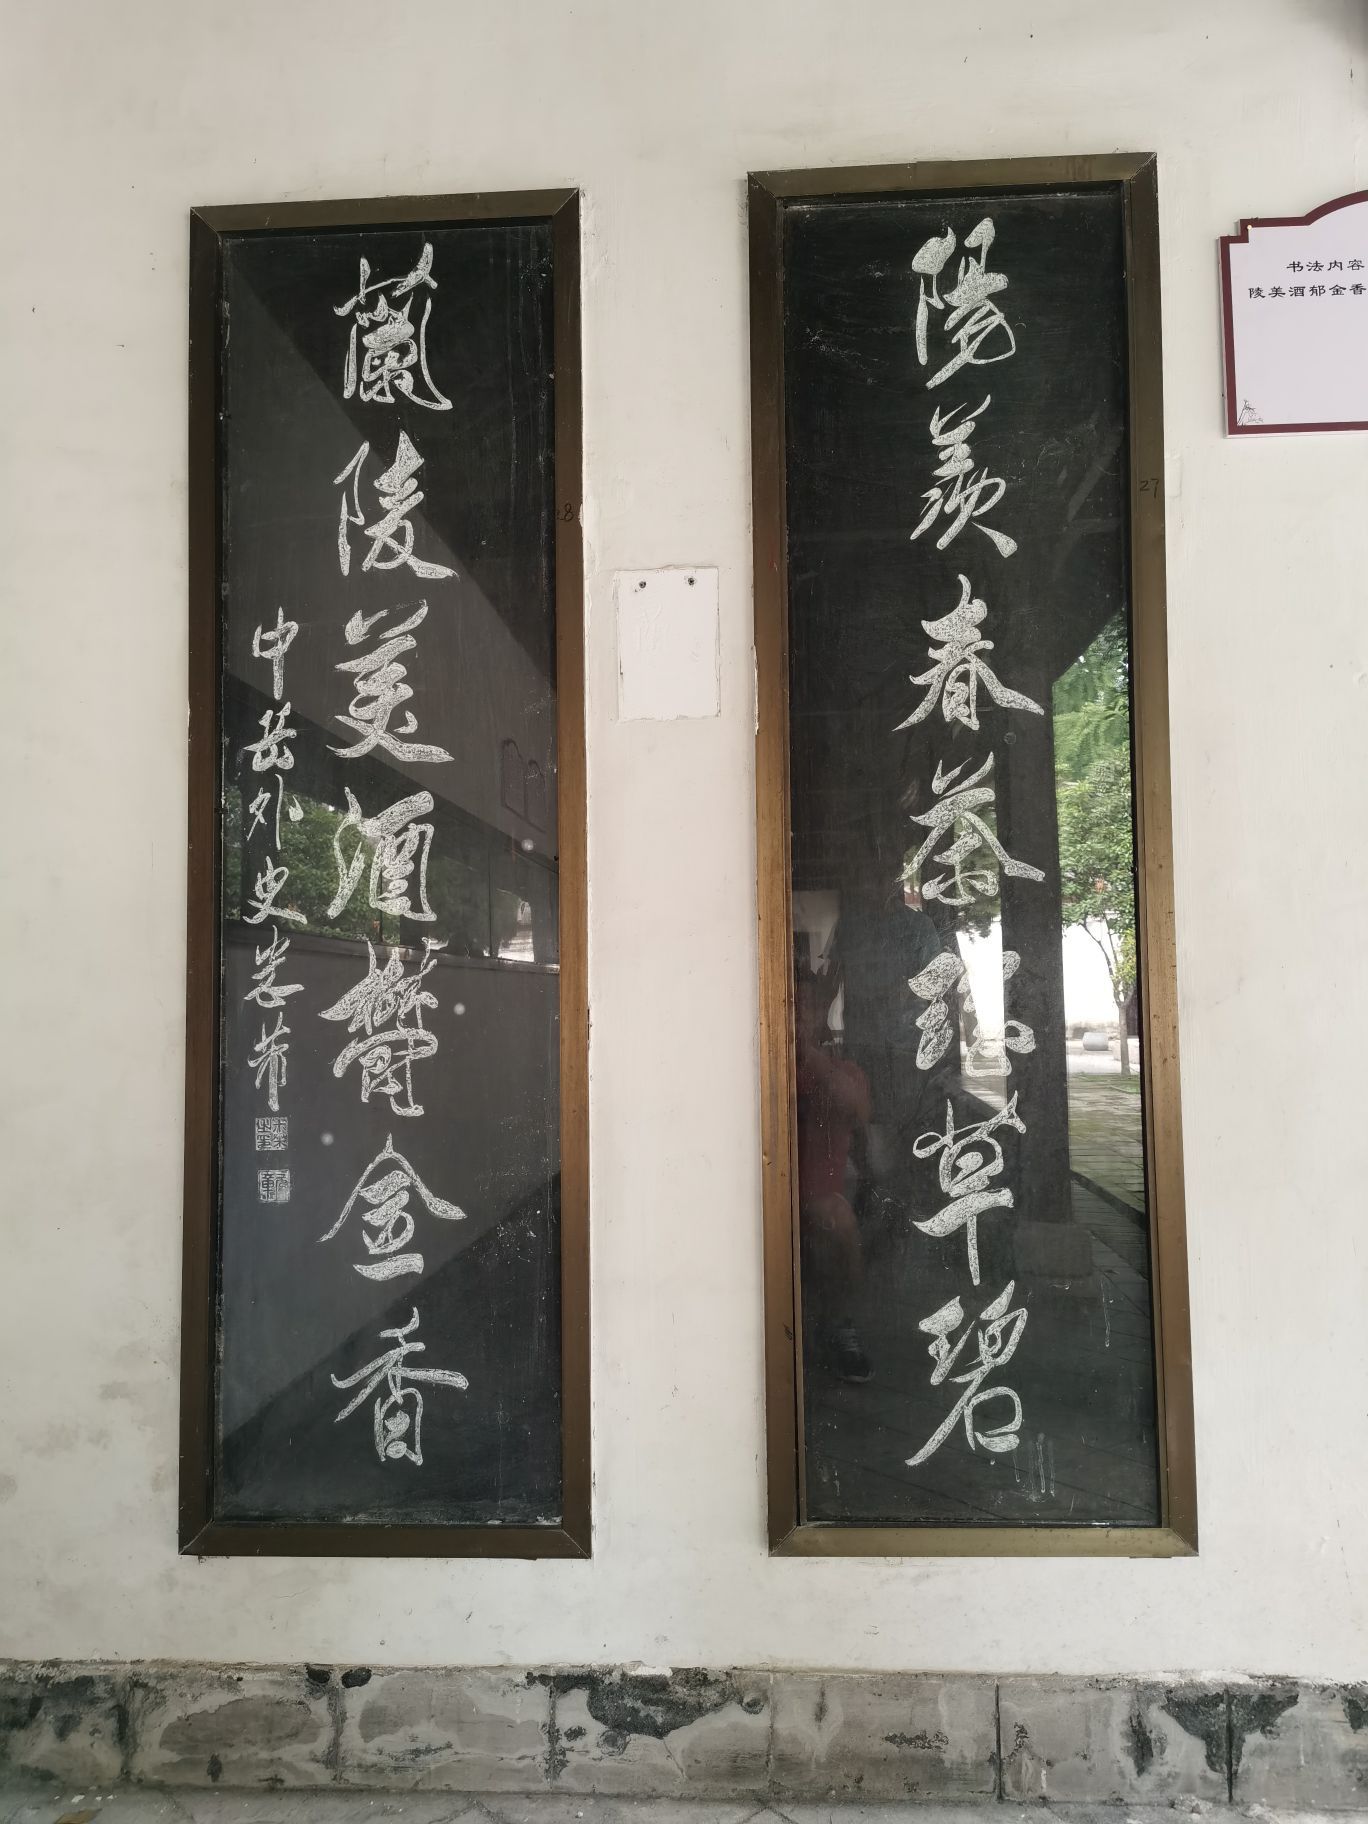 陽羨春茶瑶草碧
蘭陵美酒鬱金香
中岳外史米芾
书法内容
陵美酒郁金香
27
28